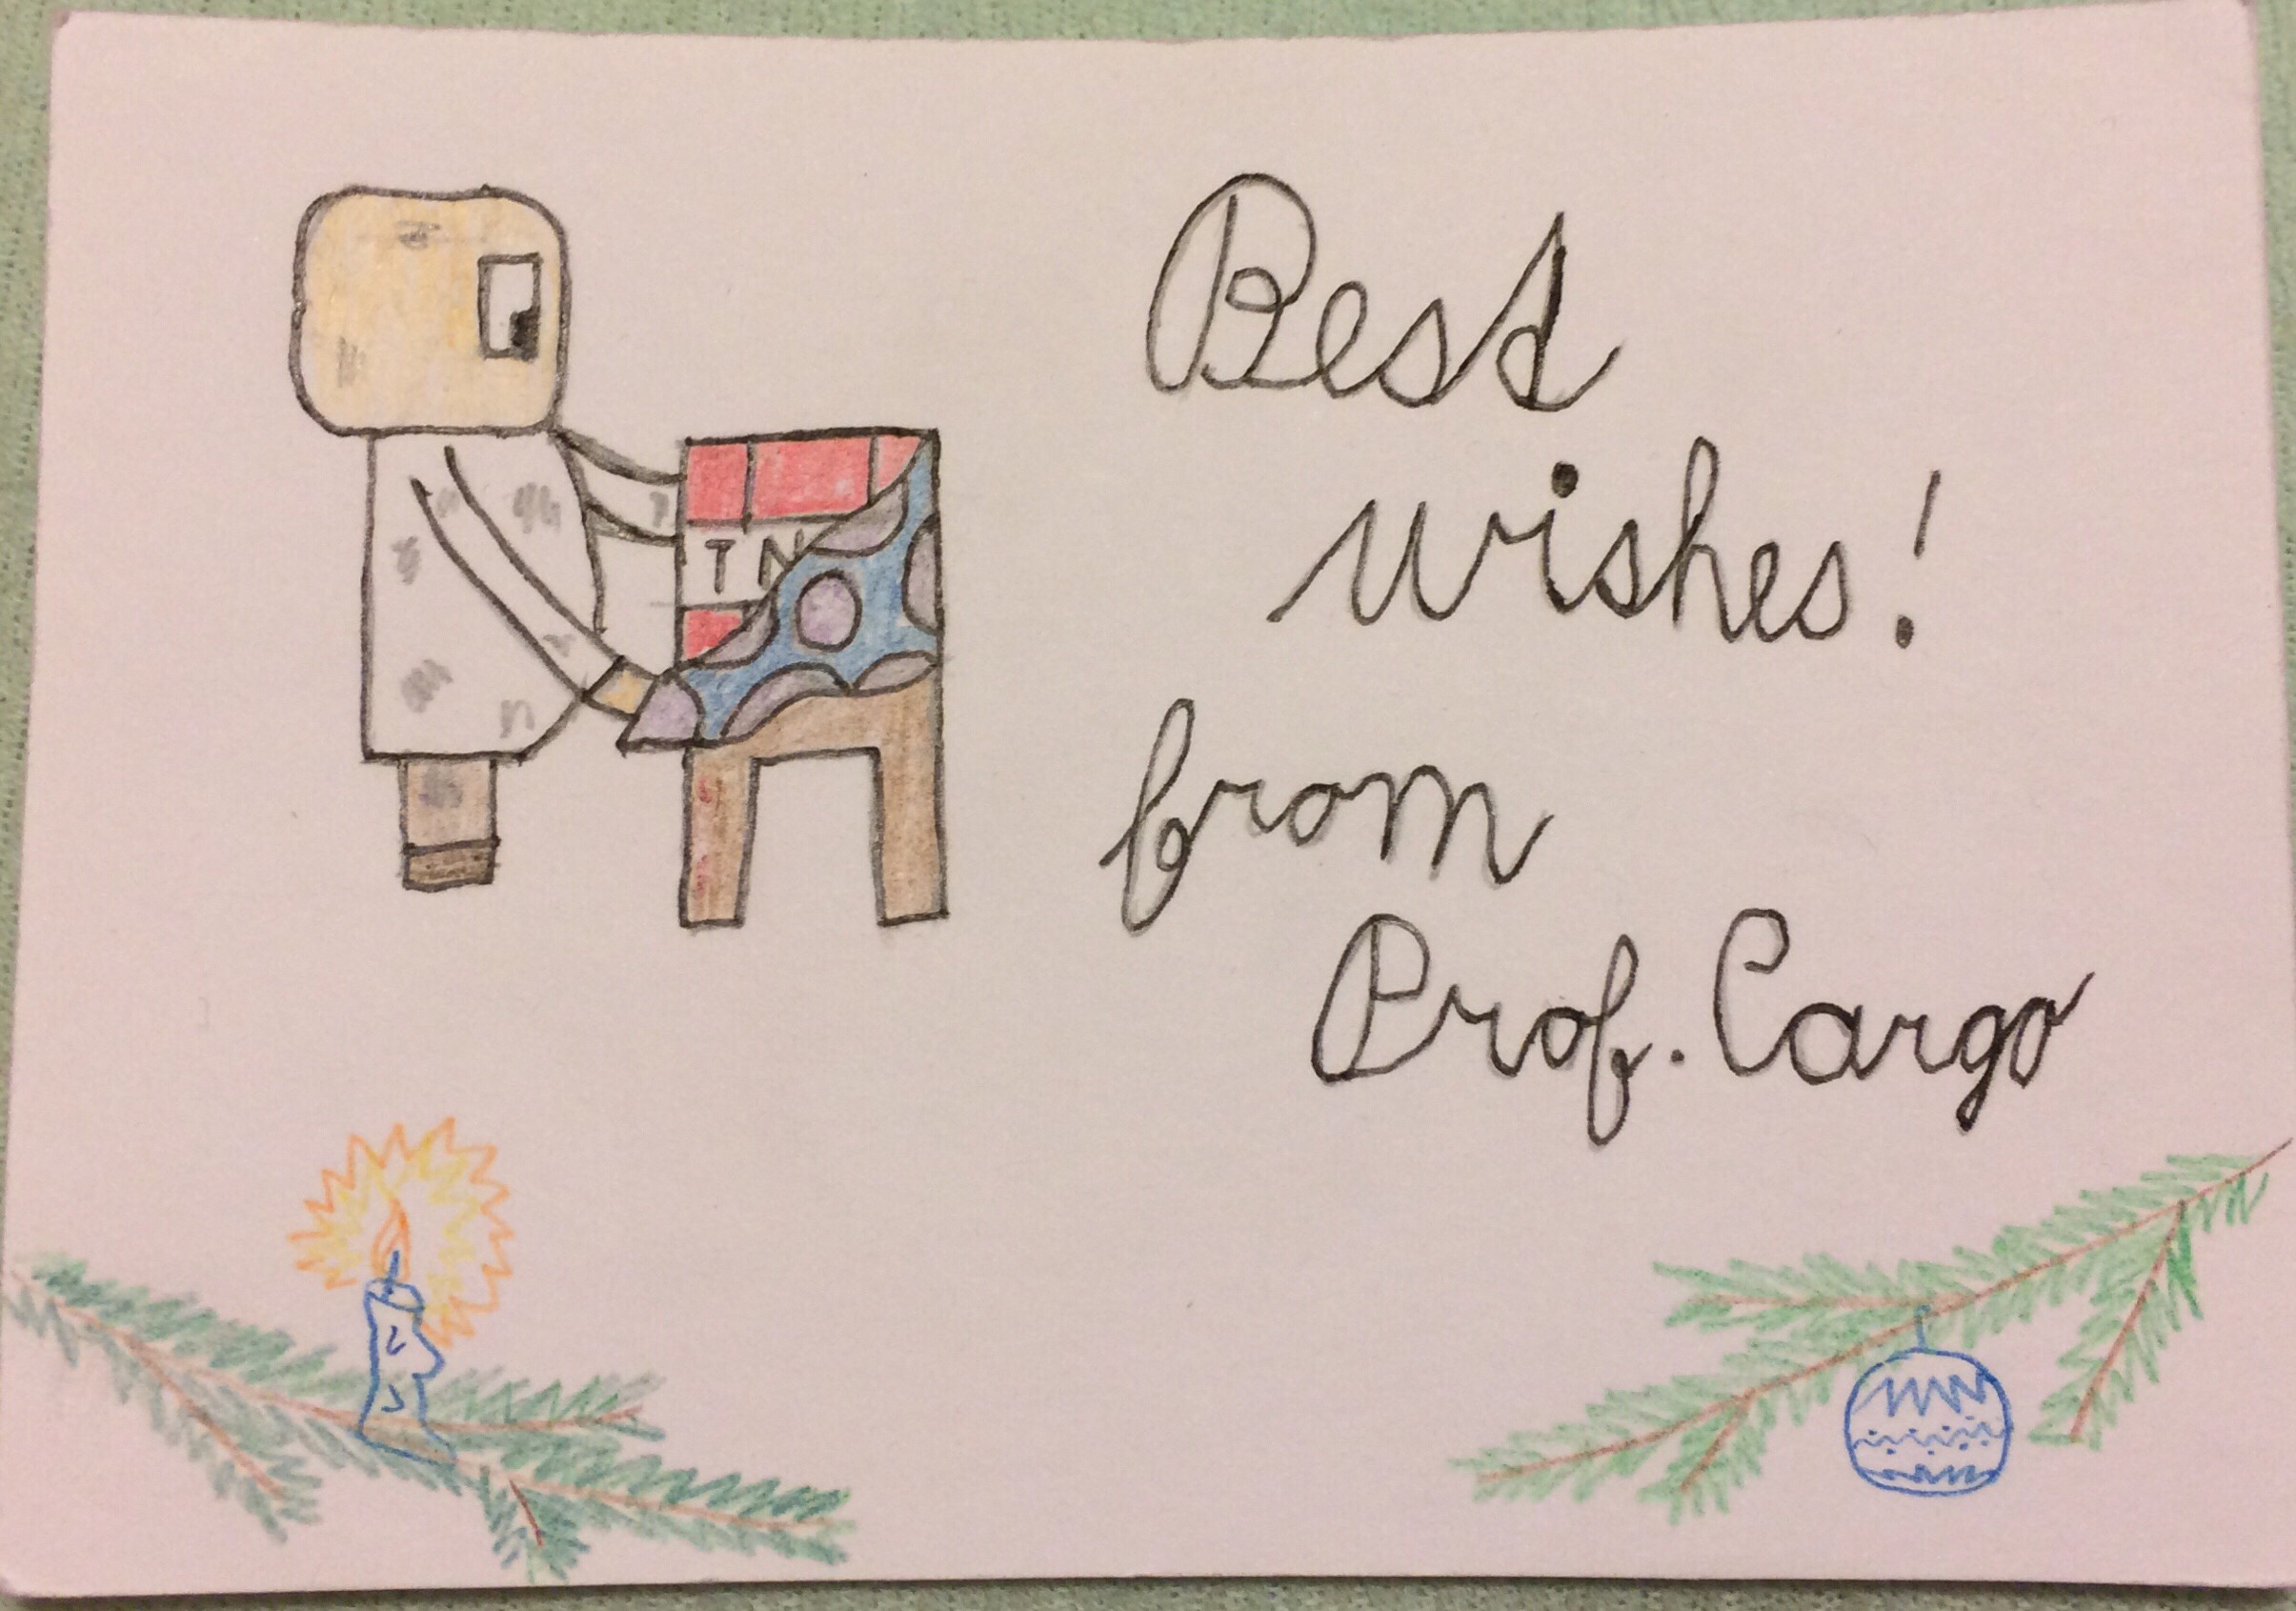 TN
Best
wishes!
from
Prof. Cargo